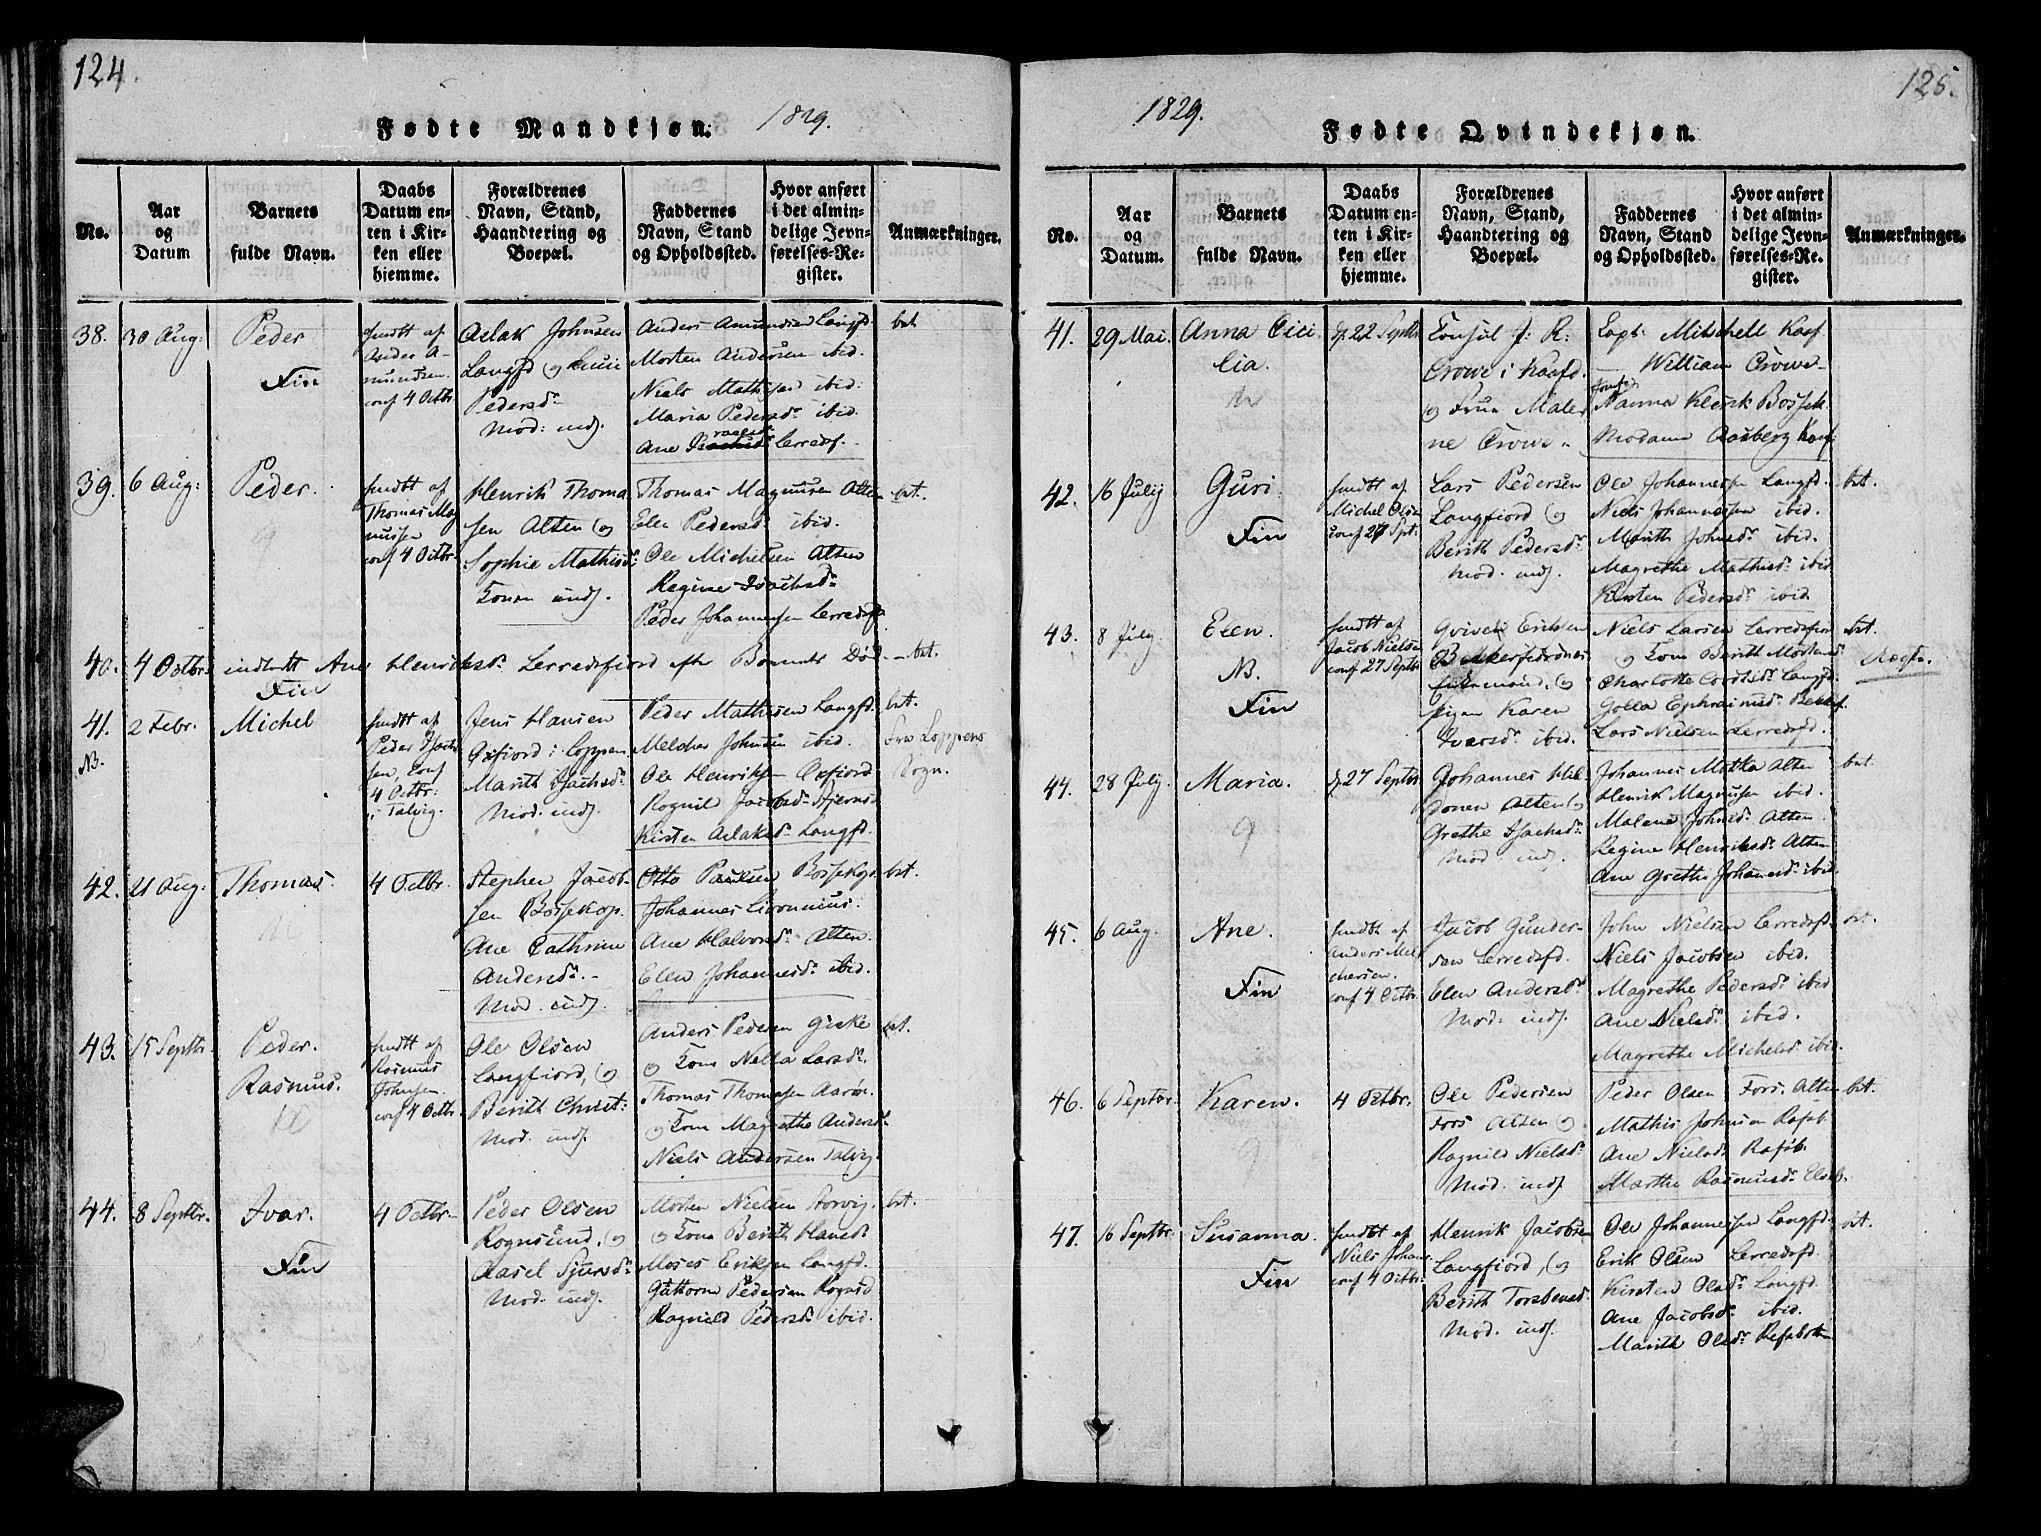 124.
Fødte Mandkjøn. 1829.
No.
Aar
og
Datum
Barnets
fulde Navn.
Daabs
Datum en-
ten i Kir-
ken eller
hjemme.
Forældrenes
Navn, Stand,
Haandtering og
Boepæl.
Faddernes
Navn, Stand
og Opholdssted.
Hvor anført
i det almin-
delige Jevn-
førelses-Re-
gister.
Anmærkninger.
38. 30 Aug: Peder
Fin
hmdbt af
Anders A-
mundsen
conf 4 Octbr.
Aslak Johnsen
Langfd og
Pedersdr
Mod: indf.
Anders Amundsen Langfd.
Morten Andersen ibid.
Niels Mathisen ibid:
Maria Pedersdr ibid.
Ane Lerredsf.
int
39. 6 Aug: Peder.
hmdbt af
Thomas Mag
nussen
conf 4 Octbr.
Henrik Thoma
sen Alten og
Sophie Mathisdr
Konen indf.
Thomas Magnusen Alten
Elen Pedersdr ibid.
Ole Michelsen Alten
Regine Isachsdr
Peder Johannesen Lerredsf.
int.
40. 4 Octbr. indledt Ane Henriksdr. Lerredsfiord efter Barnets Død. - int.
Fin
41. 2 Febr. Michel
NB.
hmdbt af
Peder Isach
sen, conf
4 Octbr:
i Talvig.
Jens Hansen
Oxfiord i Loppen
Marith Isachsdr
Mod. indf.
Peder Mathisen Langfd.
Melcher Johnsen ibid.
Ole Henriksen Oxfiord
Rognil Jacobsdr Stjernsd
Kirsten Aslaksdr Langfd.
int.
Fra Loppens
Sogn.
42. 21 Aug: Thomas.
4 Octbr.
Stephen Jacob-
sen Bossekop.
Ane Cathrine
Andersdr.-
Mod. indf.
Otto Paulsen Bossekop
Johannes
Ane Halvorsdr Alten.
Elen Johannesdr ibid.
int.
43. 15 Septbr. Peder.
Rasmus.
hmdbt af
Rasmus
Johnsen
conf 4 Octbr.
Ole Olsen
Langfiord, og
Berith Christ:
Mod. indf.
Anders Pedersen Giske
og Kone Nella Larsdr.
Thomas Thomasen Aarøe.
og Kone Magrethe Andersdr
Niels Andersen Talvig.
int.
44. 8 Septbr. Ivar.
Fin
4 Octbr.
Peder Olsen
Rognsund, og
Aasel Sjursdr
Mod. indf.
Morten Nielsen Storvig.
og Kone Berith Hansdr
Moses Eriksen Langfd.
Guttorm Pedersen Rognsd
Ragnild Pedersdr ibid.
int.
125.
1829.
Fødte Qvindekjøn.
No.
Aar
og
Datum.
Barnets
fulde Navn.
Daabs
Datum en-
ten i Kir-
ken eller
hjemme.
Forældrenes
Navn, Stand,
Haandtering og
Boepæl.
Faddernes
Navn, Stand
og Opholdssted.
Hvor anført
i det almin-
delige Jevn-
førelses-Re-
gister.
Anmærkninger.
41. 29 Mai. Anna Cici
lia.
22 Septbr.
Consul J: R:
Crowe i Kaafd.
og Frue Male
ne Crowe.
Capt: Mitchell Kaaf
William Crowe
Jomfr
Nanna Klerck Bossek.
Madame Aasberg Kaaf
42. 16 Julij Guri.
Fin
hmdbt af
Michel Olsen
conf 27 Spt:
Lars Pedersen
Langfiord og
Berith Pedersdr
Mod. indf.
Ole Johannesen Langfd.
Niels Johannessen ibid.
Marith Johnsdr ibid.
Magrethe Mathisdr ibid
Kirsten Pedersdr ibid.
int.
43. 8 Julij. Elen.
NB.
Fin
hmdbt af
Jacob Nielsen
conf 27 Septbr
Eriksen
og
pigen Karen
Ivarsdr ibid.
Niels Larsen Lerredsfior
og Kone Berith Mortensdr
Charlotte Langfd.
Golla Ephraimsdr
Lars Nielsen Lerredsfd.
int.
Uægte.
44. 28 Julij. Maria.
27 Septbr
Johannes Hil-
donen Alten og
Grethe Isachsdr
Mod. indf.
Johannes Motka Alten
Henrik Magnusen ibid.
Malene Johnsdr Alten.
Regine Henriksdr Alten
Ane Grethe Johansdr ibid.
int.
45. 6 Aug. Ane.
Fin
hmdbt af
Anders Mel
chersen.
conf 4 Octbr.
Jacob Gunder-
sen Lerredsfd.
Elen Andersdr
Mod. indf.
John Nielsen Lerredsfd.
Niels Jacobsen ibid.
Magrethe Pedersdr ibid
Ane Nielsdr ibid.
Magrethe Michelsdr ibid.
int.
46. 6 Septbr. Karen.
4 Octbr:
Ole Pedersen
Fors Alten og
Ragnild Nielsdr
Mod. indf
Peder Olsen Fors. Alten
Mathis Johnsen Rafsb.
Ane Nielsdr Rafsb.
Marthe Rasmusdr Elvb.
int.
47. 16 Septbr. Susanna.
Fin
hmdbt af
Niels Johans:
conf 4 Octbr:
Henrik Jacobsen
Langfiord, og
Berith Torsbensdr
Mod. indf.
Ole Johannesen Langfd.
Erik Olsen Lerredsfd.
Kirsten Olsdr Langfd.
Ane Jacobsdr ibid.
Marith Olsdr Refsbotn
int.